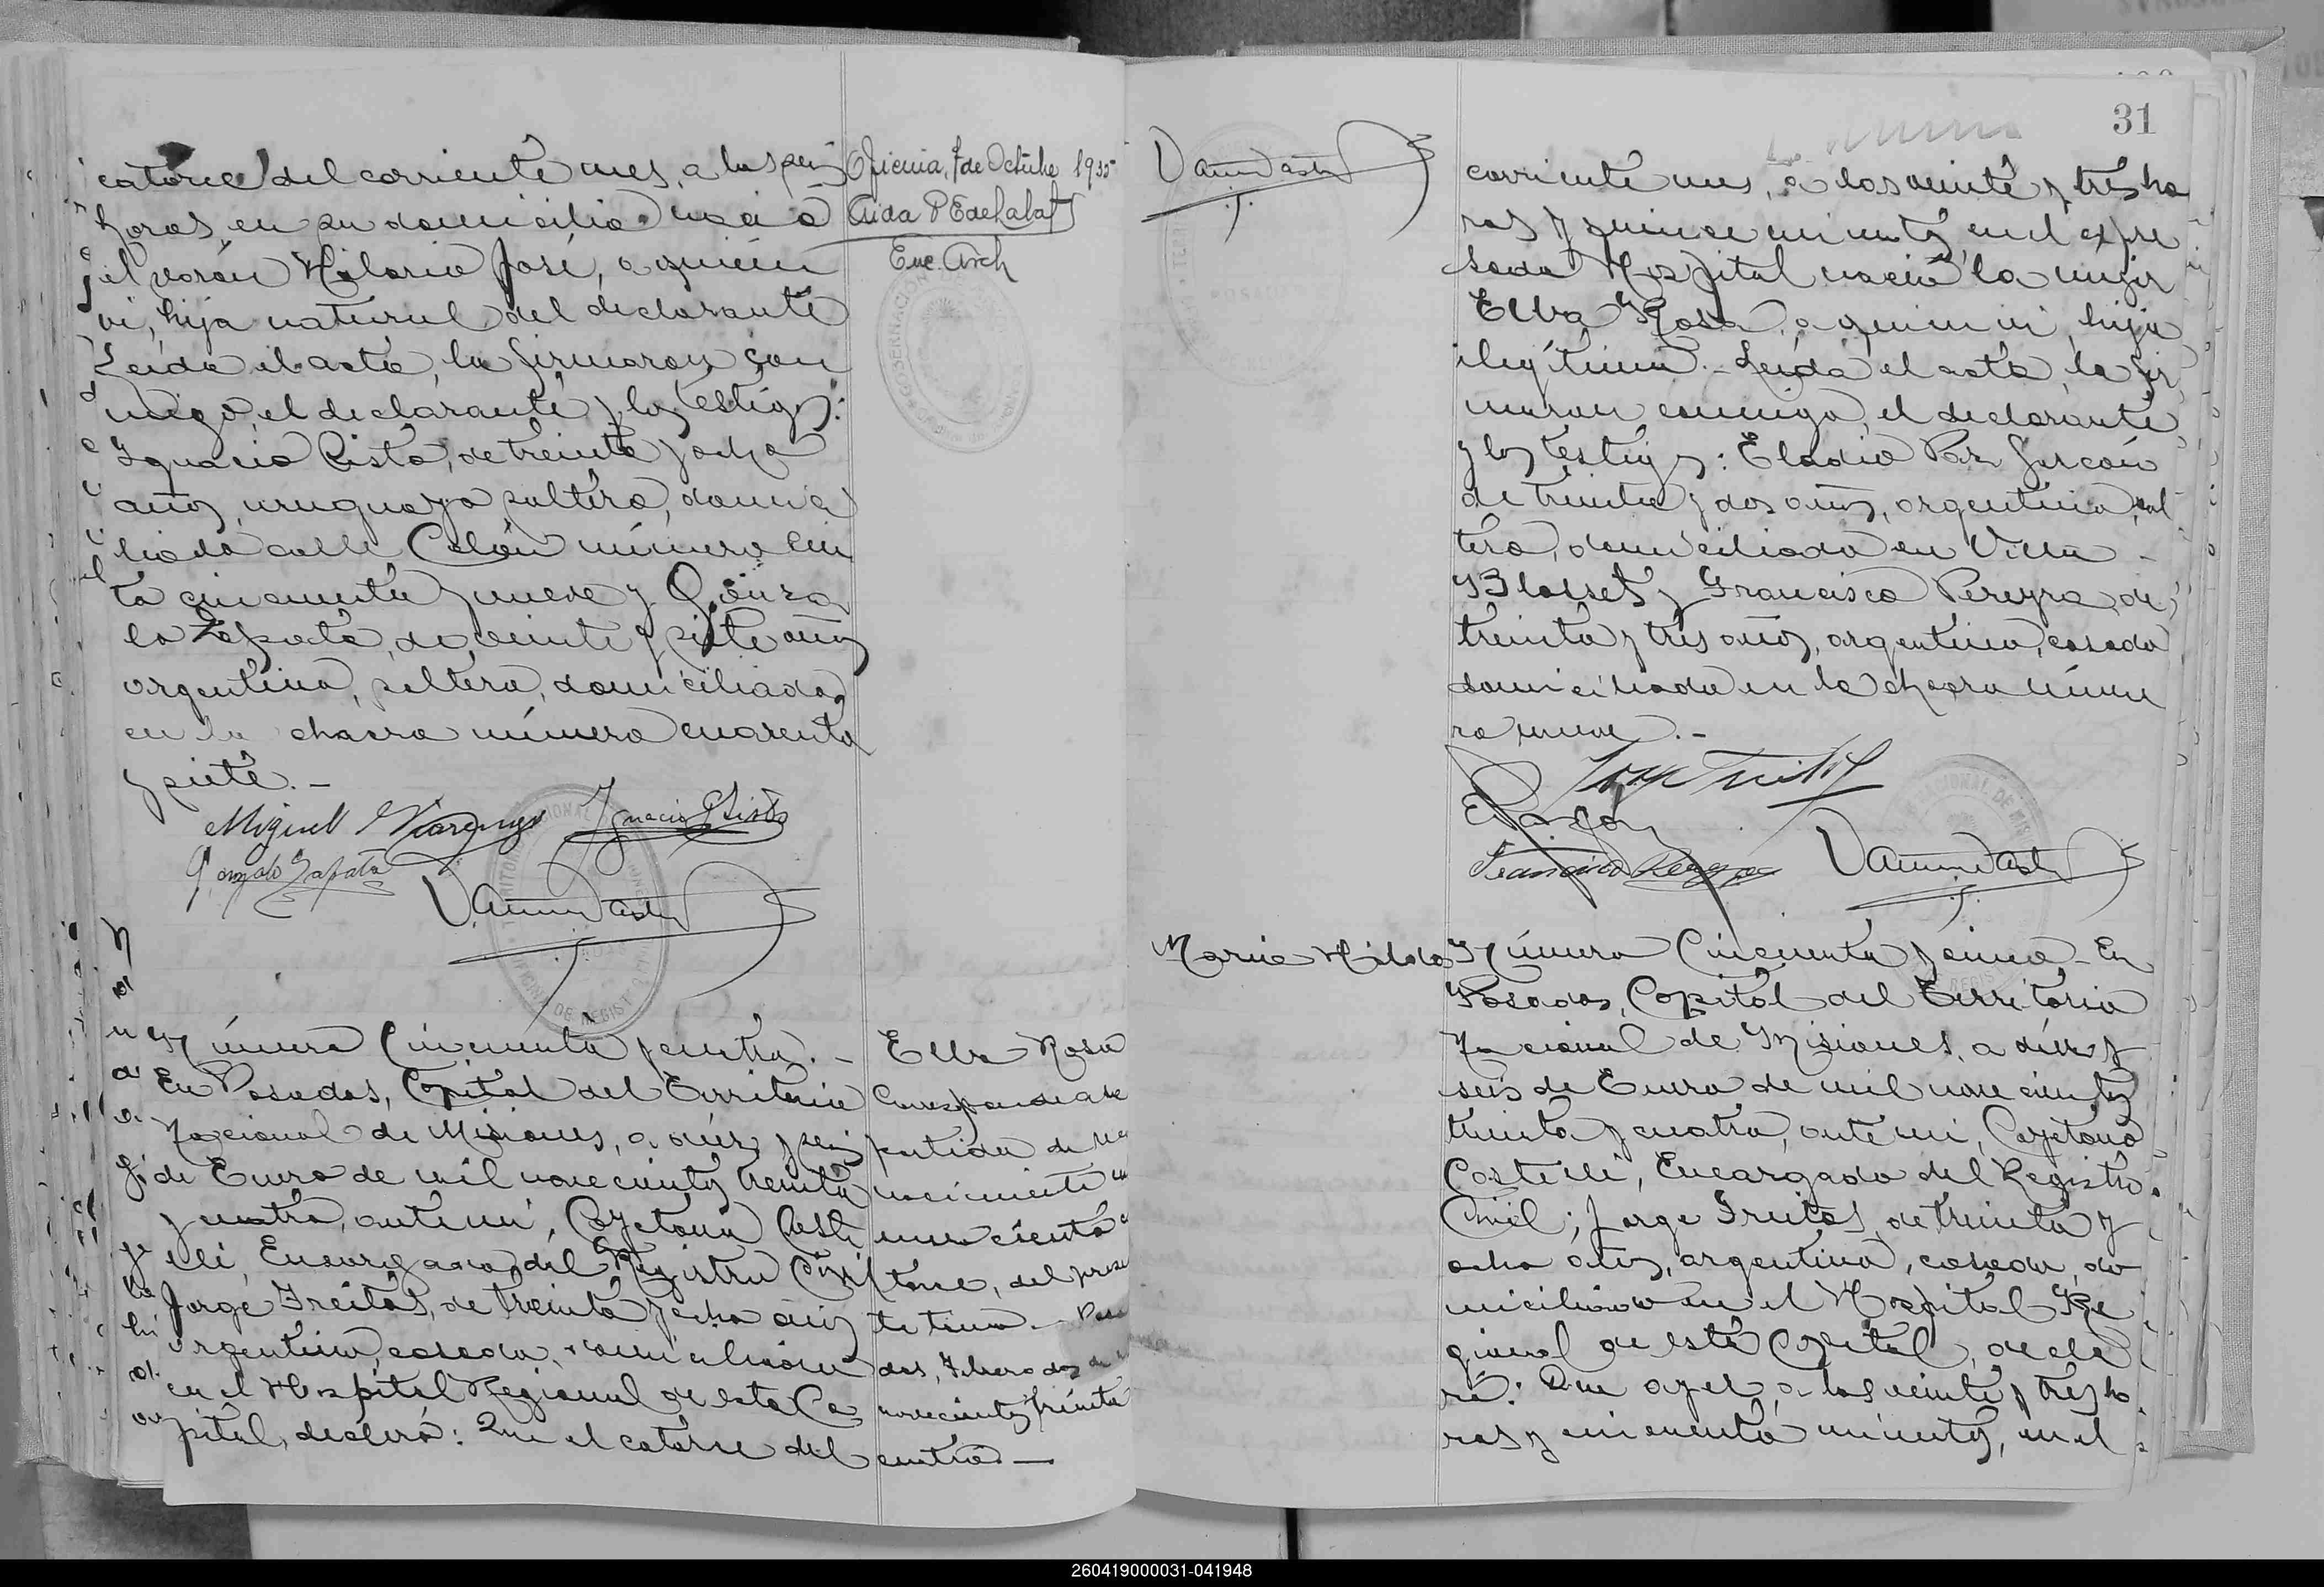 catorce del corriente mes, a las seis
horas, en su domicilio nació
el varón Hilario José, a quién
vi, hijo natural del declarante
Leída el acta, la firmaron con
migo, el declarante y los testigos:
Ignacio Sisto, de treinta y ocho
años, uruguayo soltero, domici
liado calle Colón número cien
to cincuenta y nueve y Gonza
lo Zapata, de veinte y siete años
argentino, soltero, domiciliado
en la chacra número cuarenta
y siete.-
Miguel Ignacio Sisto
Gonzalo Zapata
Oficina, 1 de Octubre 1935
Aida P E de Labat
Enc. Arch
Número Cincuenta y cuatro.-
En Posadas, Capital del Territorio
Nacional de Misiones, a diez y seis
de Enero de mil novecientos treinta
y cuatro, ante mi, Cayetano Cast
elli, Encargado del Registro Civil
Jorge Freitas, de treinta y ocho años
argentino, casado, domiciliado
en el Hospital Regional de esta Ca
pital, declaró: Que el catorce del
Elba Rosa
Corresponde a la
partida de re
nocimiento
mero ciento
torce, del prese
te tomo.- Posa
das, Febrero dos de
novecientos treinta
cuatro.-
31
corriente mes, a las veinte y tres ho
ras y quince minutos, en el expre
sado Hospital nació la mujer
Elba Rosa, a quien vi, hija
ilegítima.- Leída el acta, la fir
maron conmigo, el declarante
y los testigos: Eladio Garcón
de treinta y dos años, argentino, sol
tero, domiciliado en Villa
Blosset y Francisco Pereyra, de
treinta y tres años, argentino, casado
domiciliado en la chacra núme
ro nueve.-
Jorge Freitas
E. Garçón
Francisco Pereyra
María Hilda
Número Cincuenta y cinco.- En
Posadas, Capital del Territorio
Nacional de Misiones, a diez y
seis de Enero de mil novecientos
treinta y cuatro, ante mi, Cayetano
Castelli, Encargado del Registro
Civil; Jorge Freitas, de treinta y
ocho años, argentino, casado, do
miciliado en el Hospital Re
gional de esta Capital, decla
ró: Que ayer, a las veinte y tres ho
ras y cincuenta minutos, en el
260419000031-041948